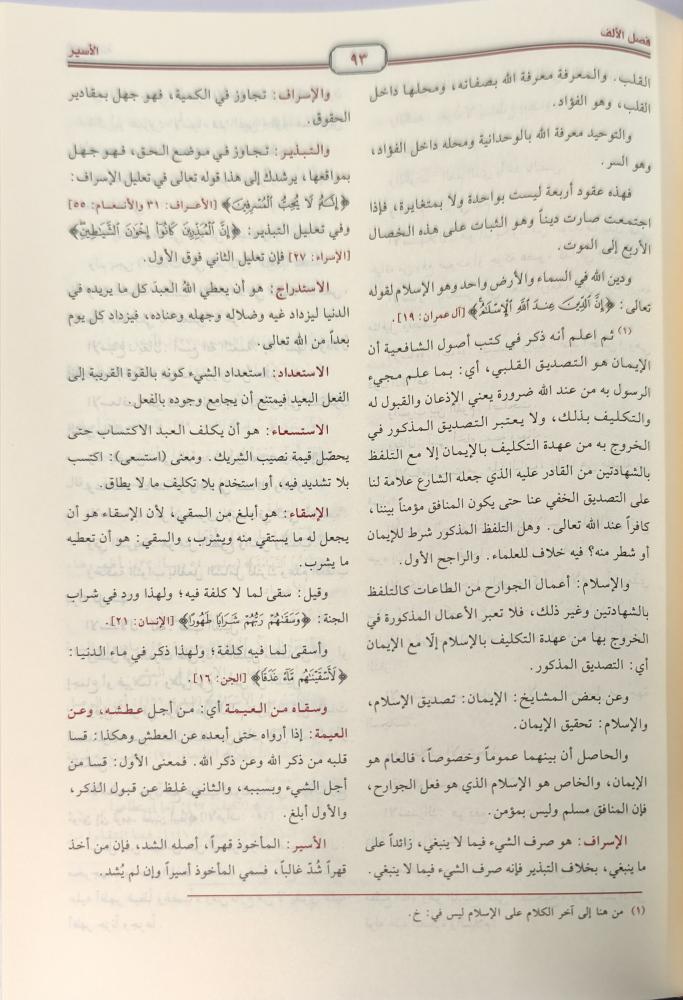 فصل الألف
٩٣
الأسير
القلب. والمعرفة معرفة الله بصفاته، ومحلها داخل
القلب، وهو الفؤاد.
والتوحيد معرفة الله بالوحدانية ومحله داخل الفؤاد،
وهو السر.
فهذه عقود أربعة ليست بواحدة ولا بمتغايرة، فإذا
اجتمعت صارت ديناً وهو الثبات على هذه الخصال
الأربع إلى الموت.
ودين الله في السماء والأرض واحد وهو الإسلام لقوله
تعالى: ﴿إِنَّ الدِّينَ عِندَ اللَّهِ الْإِسْلَامُ﴾ [آل عمران: ١٩].
(١) ثم اعلم أنه ذكر في كتب أصول الشافعية أن
الإيمان هو التصديق القلبي، أي: بما علم مجيء
الرسول به من عند الله ضرورة يعني الإذعان والقبول له
والتكليف بذلك، ولا يعتبر التصديق المذكور في
الخروج به من عهدة التكليف بالإيمان إلا مع التلفظ
بالشهادتين من القادر عليه الذي جعله الشارع علامة لنا
على التصديق الخفي عنا حتى يكون المنافق مؤمناً بيننا،
كافراً عند الله تعالى. وهل التلفظ المذكور شرط للإيمان
أو شطر منه؟ فيه خلاف للعلماء. والراجح الأول.
والإسلام: أعمال الجوارح من الطاعات كالتلفظ
بالشهادتين وغير ذلك، فلا تعبر الأعمال المذكورة في
الخروج بها من عهدة التكليف بالإسلام إلّا مع الإيمان
أي: التصديق المذكور.
وعن بعض المشايخ: الإيمان: تصديق الإسلام،
والإسلام: تحقيق الإيمان.
والحاصل أن بينهما عموماً وخصوصاً، فالعام هو
الإيمان، والخاص هو الإسلام الذي هو فعل الجوارح،
فإن المنافق مسلم وليس بمؤمن.
الإسراف: هو صرف الشيء فيما لا ينبغي، زائداً على
ما ينبغي، بخلاف التبذير فإنه صرف الشيء فيما لا ينبغي.
والإسراف: تجاوز في الكمية، فهو جهل بمقادير
الحقوق.
والتبذير: تجاوز في موضع الحق، فهو جهل
بمواقعها، يرشدك إلى هذا قوله تعالى في تعليل الإسراف:
﴿إِنَّهُ لَا يُحِبُّ الْمُسْرِفِينَ﴾ [الأعراف: ٣١ والأنعام: ٥٥]
وفي تعليل التبذير: ﴿إِنَّ الْمُبَذِّرِينَ كَانُوا إِخْوَانَ الشَّيَاطِينِ﴾
[الإسراء: ٢٧] فإن تعليل الثاني فوق الأول.
الاستدراج: هو أن يعطي اللهُ العبدَ كل ما يريده في
الدنيا ليزداد غيه وضلاله وجهله وعناده، فيزداد كل يوم
بعداً من الله تعالى.
الاستعداد: استعداد الشيء كونه بالقوة القريبة إلى
الفعل البعيد فيمتنع أن يجامع وجوده بالفعل.
الاستسعاء: هو أن يكلف العبد الاكتساب حتى
يحصّل قيمة نصيب الشريك. ومعنى (استسعى): اكتسب
بلا تشديد فيه، أو استخدم بلا تكليف ما لا يطاق.
الإسقاء: هو أبلغ من السقي، لأن الإسقاء هو أن
يجعل له ما يستقي منه ويشرب، والسقي: هو أن تعطيه
ما يشرب.
وقيل: سقى لما لا كلفة فيه؛ ولهذا ورد في شراب
الجنة: ﴿وَسَقَاهُمْ رَبُّهُمْ شَرَابًا طَهُورًا﴾ [الإنسان: ٢١].
وأسقى لما فيه كلفة؛ ولهذا ذكر في ماء الدنيا:
﴿لَأَسْقَيْنَاهُم مَّاءً غَدَقًا﴾ [الجن: ١٦].
وسقاه من العيمة أي: من أجل عطشه، وعن
العيمة: إذا أرواه حتى أبعده عن العطش وهكذا: قسا
قلبه من ذكر الله وعن ذكر الله. فمعنى الأول: قسا من
أجل الشيء وبسببه، والثاني غلظ عن قبول الذكر،
والأول أبلغ.
الأسير: المأخوذ قهراً، أصله الشد، فإن من أخذ
قهراً شُدّ غالباً، فسمي المأخوذ أسيراً وإن لم يُشد.
(١) من هنا إلى آخر الكلام على الإسلام ليس في: خ.